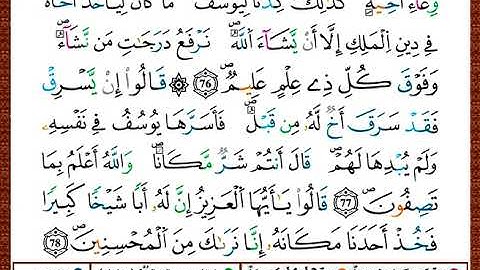 وِعَآءِ أَخِيهِ ۚ كَذَٰلِكَ كِدْنَا لِيُوسُفَ ۖ مَا كَانَ لِيَأْخُذَ أَخَاهُ
فِي دِينِ الْمَلِكِ إِلَّا أَنْ يَّشَآءَ اللّٰهُ ۚ نَرْفَعُ دَرَجَٰتٍ مَّن نَّشَآءُ ۗ
وَفَوْقَ كُلِّ ذِي عِلْمٍ عَلِيمٌ ۝76 ۞ قَالُوٓا إِنْ يَّسْرِقْ
فَقَدْ سَرَقَ أَخٌ لَّهُۥ مِن قَبْلُ ۚ فَأَسَرَّهَا يُوسُفُ فِي نَفْسِهِۦ
وَلَمْ يُبْدِهَا لَهُمْ ۚ قَالَ أَنتُمْ شَرٌّ مَّكَانًا ۖ وَاللّٰهُ أَعْلَمُ بِمَا
تَصِفُونَ ۝77 قَالُوا يَٰٓأَيُّهَا الْعَزِيزُ إِنَّ لَهُۥٓ أَبًا شَيْخًا كَبِيرًا
فَخُذْ أَحَدَنَا مَكَانَهُۥٓ ۖ إِنَّا نَرَىٰكَ مِنَ الْمُحْسِنِينَ ۝78